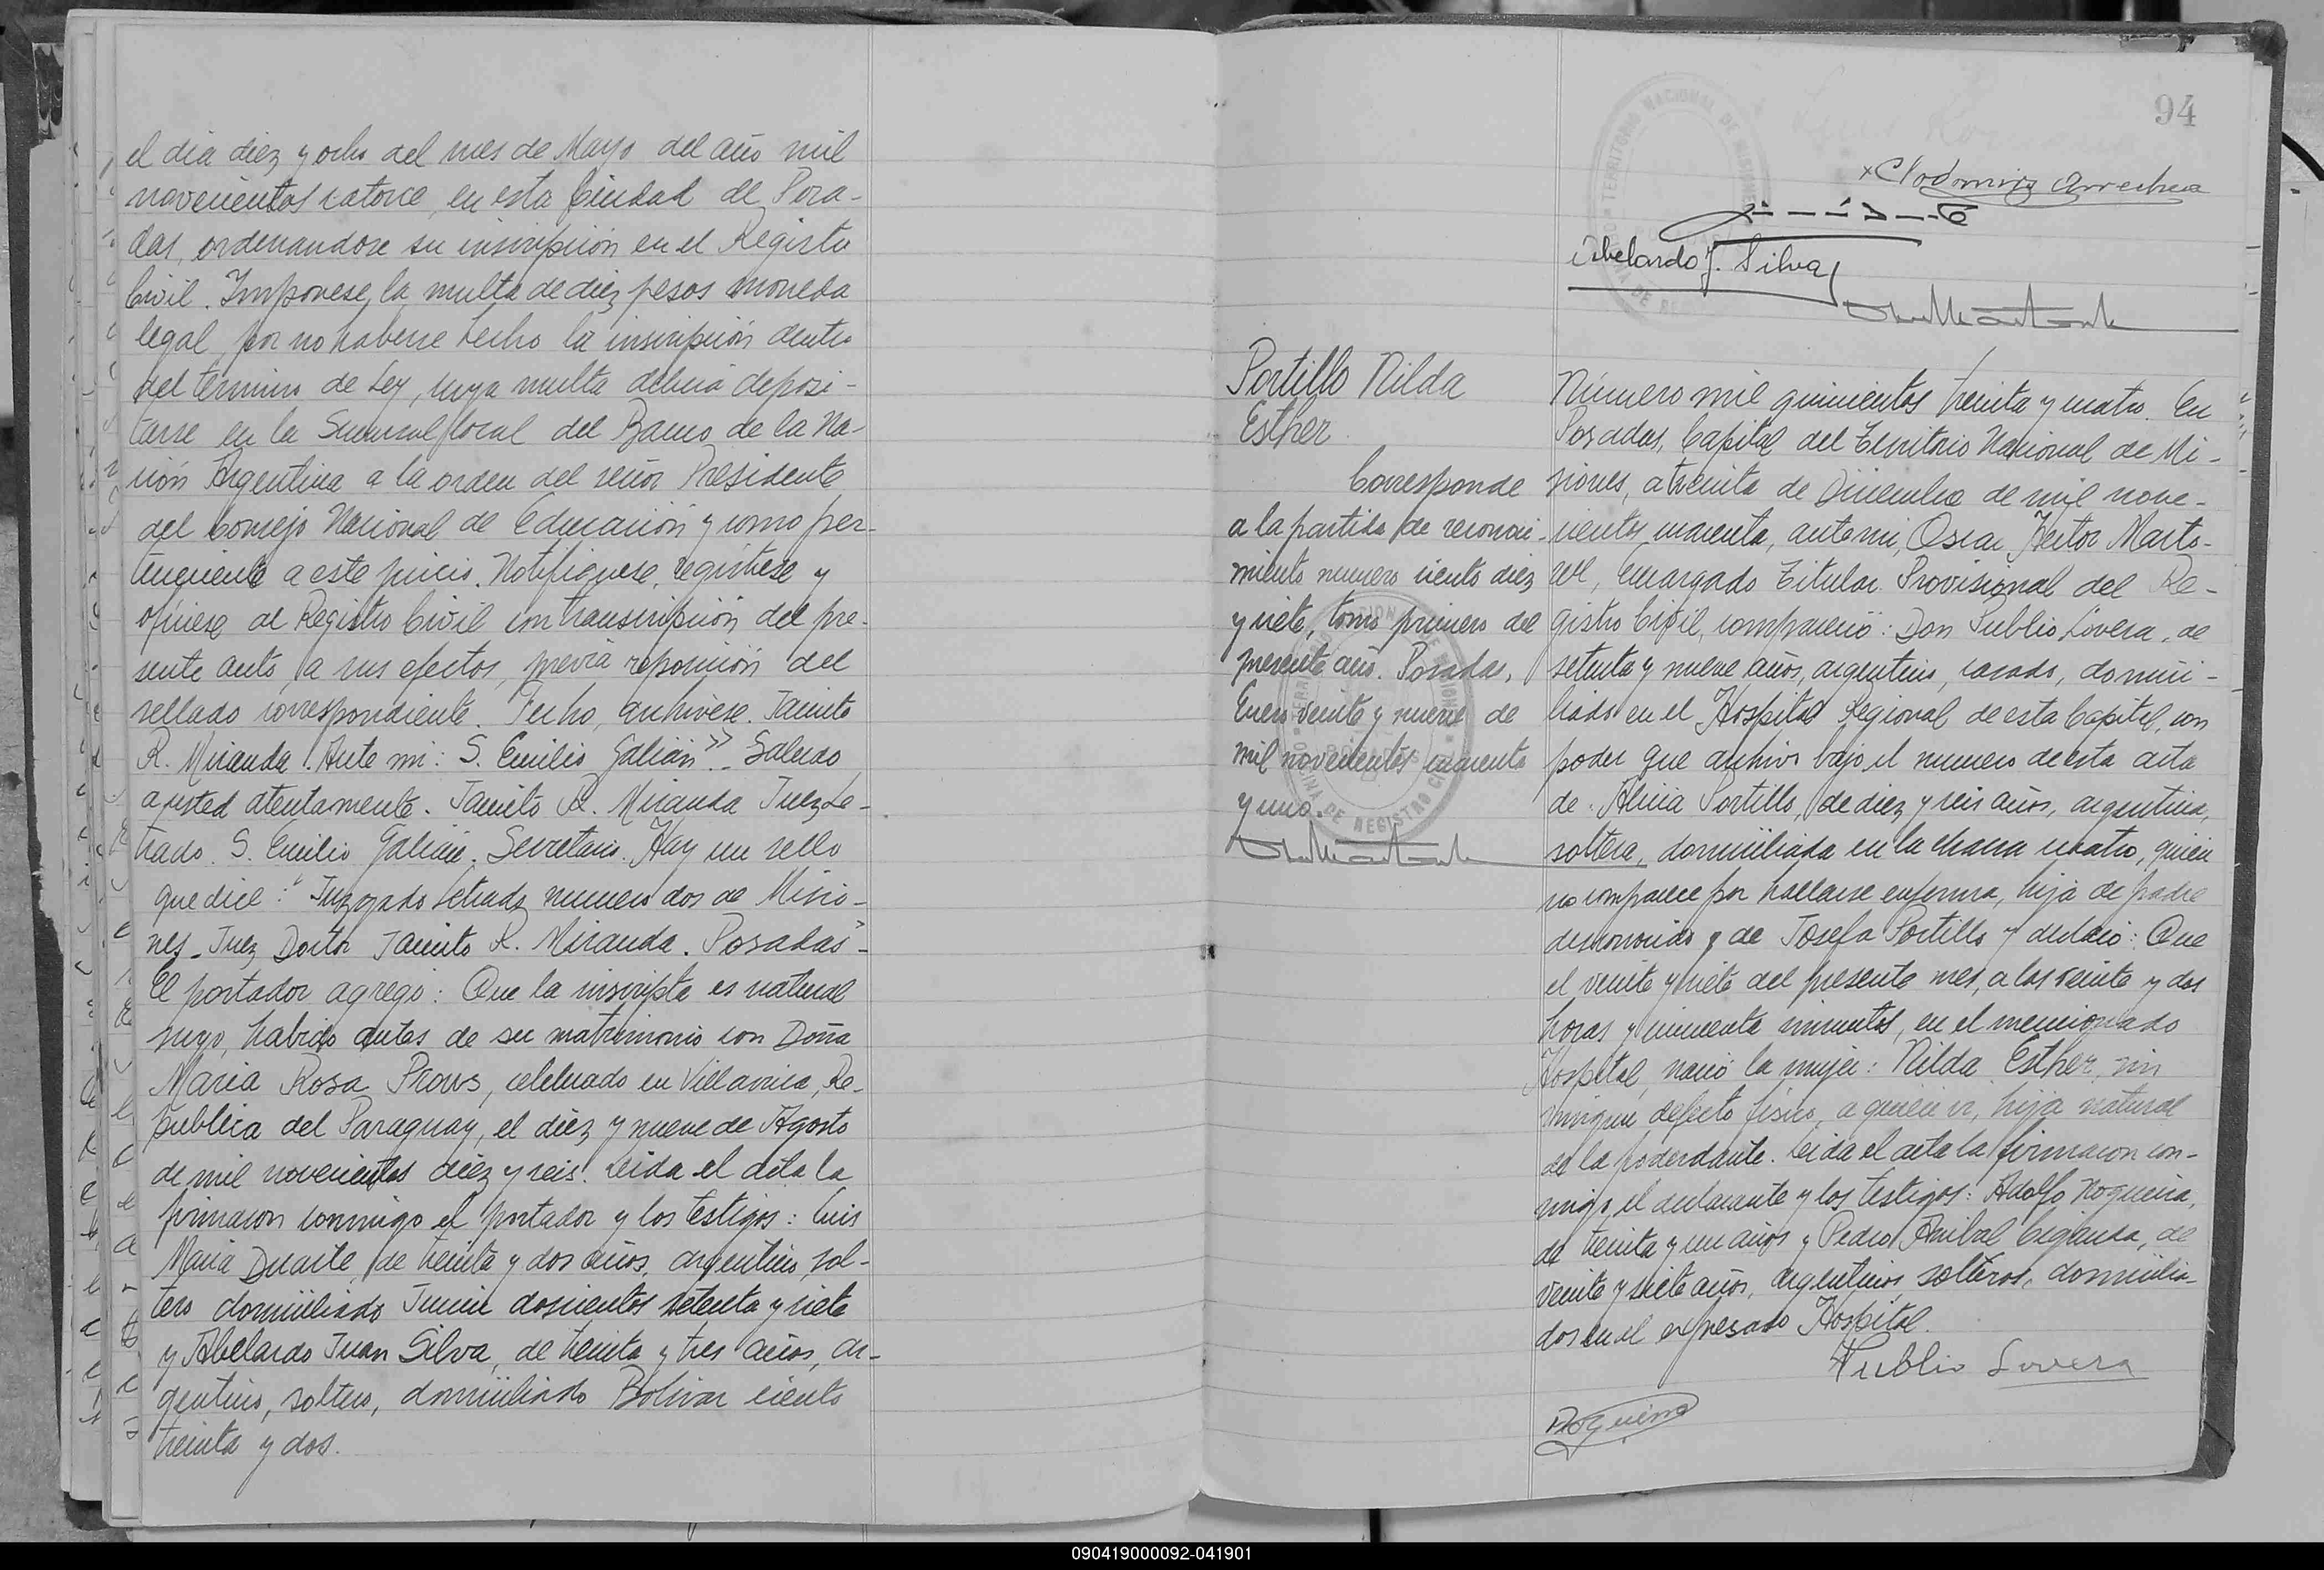 el dia diez y ocho del mes de Mayo del año mil
novecientos catorce, en esta Ciudad de Posa-
das, ordenandose su inscripción en el Registro
Civil. Imponese la multa de diez pesos moneda
legal, por no haberse hecho la inscripción dentro
del término de Ley, cuya multa deberá deposi-
tarse en la Sucursal local del Banco de la Na-
ción Argentina a la orden del señor Presidente
del Consejo Nacional de Educación y como per-
teneciente a este juicio. Notifiquese, registrese y
oficiese al Registro Civil con transcripción del pre-
sente auto, a sus efectos, previa reposición del
sellado correspondiente. Fecho, archivese. Jacinto
R. Miranda. Ante mi: S. Emilio Galián". Saludo
a usted atentamente. Jacinto R. Miranda Juez Le-
trado. S. Emilio Galián. Secretario. Hay un sello
que dice: "Juzgado Letrado numero dos de Misio-
nes - Juez Doctor Jacinto R. Miranda. Posadas"-
El portador agregó: Que la inscripta es natural
suyo, habido antes de su matrimonio con Doña
Maria Rosa Prous, celebrado en Villarrica, Re-
pública del Paraguay, el diez y nueve de Agosto
de mil novecientos diez y seis. Leida el acta la
firmaron conmigo el portador y los testigos: Luis
Maria Duarte, de treinta y dos años, argentino, sol-
tero domiciliado Junin doscientos setenta y siete
y Abelardo Juan Silva, de treinta y tres años, ar-
gentino, soltero, domiciliado Bolivar ciento
treinta y dos.
94
x Clodomiro Arrechea
Abelardo J. Silva
Portillo Nilda
Esther
Corresponde
a la partida de reconoci-
miento numero ciento diez
y siete, tomo primero del
presente año. Posadas,
Enero veinte y nueve de
mil novecientos cuarenta
y uno.
Número mil quinientos treinta y cuatro. En
Posadas, Capital del Territorio Nacional de Mi-
siones, a treinta de Diciembre de mil nove-
cientos cuarenta, ante mi, Oscar Hector Marto-
rel, Encargado Titular Provisional del Re-
gistro Civil, compareció: Don Publio Lovera, de
setenta y nueve años, argentino, casado, domici-
liado en el Hospital Regional de esta Capital, con
poder que archivo bajo el numero de esta acta
de Alicia Portillo, de diez y seis años, argentina,
soltera, domiciliada en la chacra cuatro, quien
no comparece por hallarse enferma, hija de padre
desconocido y de Josefa Portillo y declaró: Que
el veinte y siete del presente mes, a las veinte y dos
horas y cincuenta minutos, en el mencionado
Hospital, nació la mujer: Nilda Esther, sin
ningun defecto fisico, a quien vi, hija natural
de la poderdante. Leida el acta la firmaron con-
migo, el declarante y los testigos: Adolfo Nogueira,
de treinta y un años y Pedro Anibal Ciganda, de
veinte y siete años, argentinos, solteros, domicilia-
dos en el expresado Hospital.
Publio Lovera
Nogueira
090419000092-041901